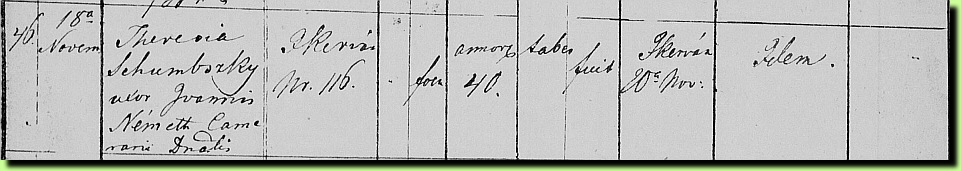 46.
18ª
Novem
Theresia
Schumbszky
uxor Joannis
Németh Came
rarii Dnalis
Ikerván
Nr. 116.
foem
annorũ
40.
tabes
fuit
Ikerván
20ª Nov:
Idem.